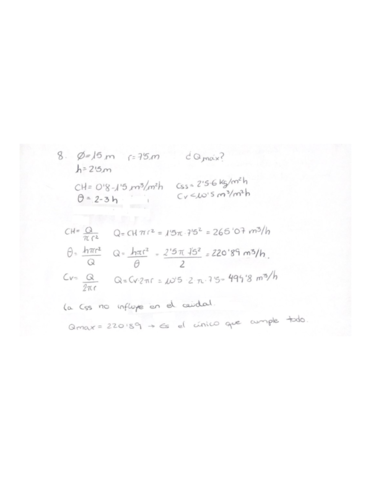 8. Ø=15m r=7'5m ¿Qmáx?
h=2'5m
CH=0'8-1'5 m³/m²h Css=2'5-6 kg/m²h
θ=2-3h Cv≤10'5 m³/m h
CH=Q/πr² Q=CHπr²=1'5π 7'5²=265'07 m³/h
θ=hπr²/Q Q=hπr²/θ=2'5π 7'5²/2=220'89 m³/h.
Cv=Q/2πr Q=Cv·2πr=10'5 2π·7'5=494'8 m³/h
La Css no influye en el caudal.
Qmax=220'89 → es el único que cumple todo.